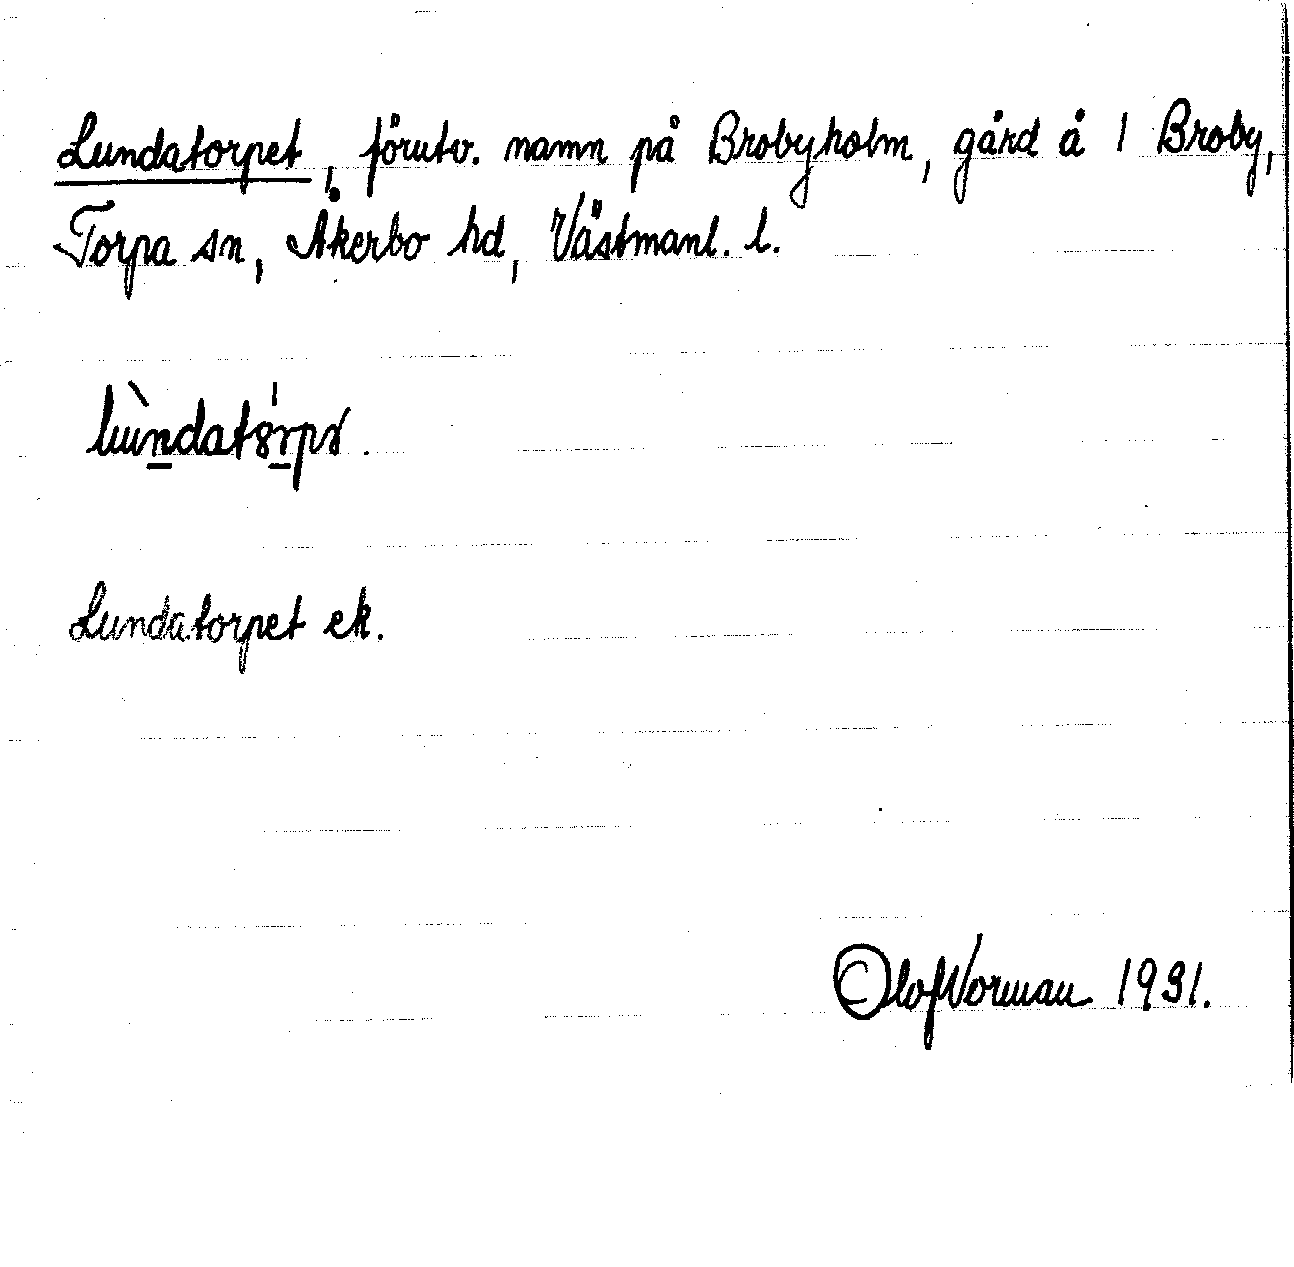 Lundatorpet, förutv. namn på Brobyholm, gård å 1 Broby,
Torpa sn, Åkerbo hd, Västmanl. l.
Lundatorpet ek.
Olof Norman 1931.